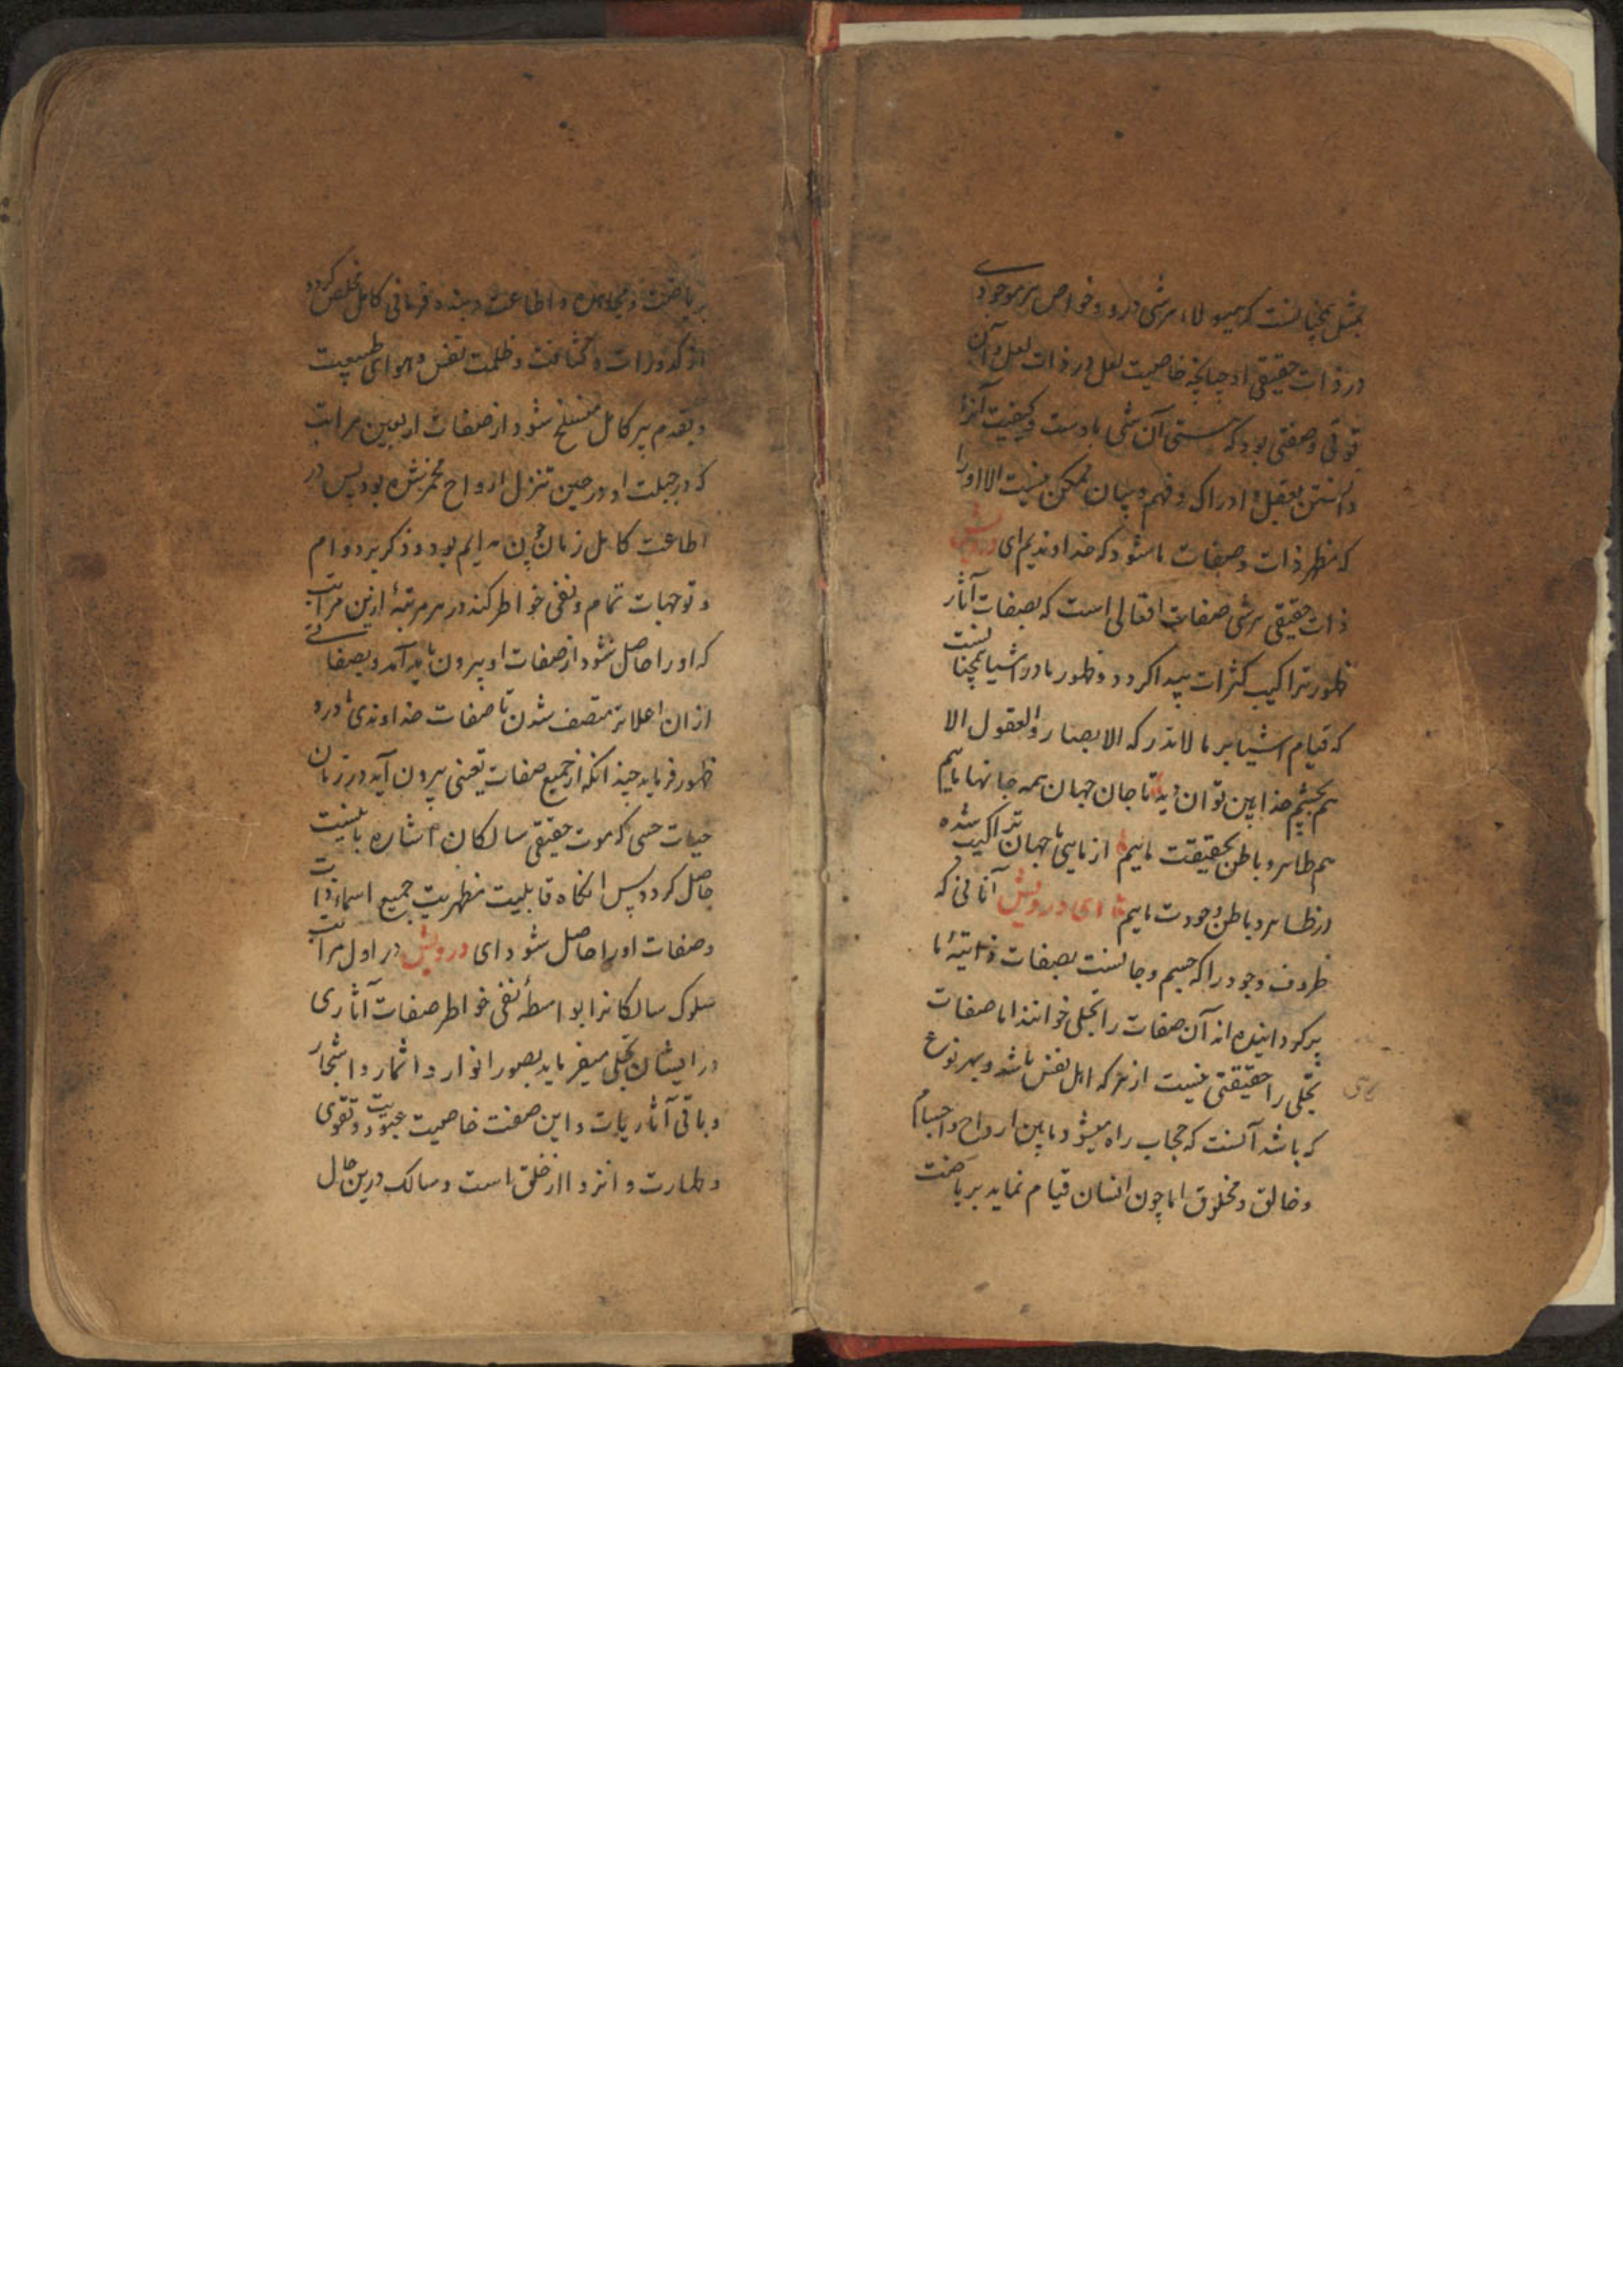 بمثل همچنانست که هیولاء هر شی درو و خواص هر موجودی
در ذات حقیقی او چنانچه خاصیت لعل در ذات لعل و آن
قوتی و صفتی بود که هستی آن شی باوست و کیفیت آنرا
دانستن بعقل و ادراک و فهم و بیان ممکن نیست الا اورا
که مظهر ذات و صفات ما شود که خداوندیم ای درویش
ذات حقیقی هر شی صفات افعالی است که بصفات آثار
ظهور تراکیب کثرات پیدا کردد و ظهور ما در اشیا همچنانست
که قیام اشیا بر ما لا تدرکه الابصار و العقول الا
هم بچشم خدا بین توان دید تا جان جهان همه جانها ماییم
هم ظاهر و باطن بحقیقت ماییم از مایی ما جهان تراکیب شده
در ظاهر و باطن وجودت ماییم ای درویش آنانی که
ظروف وجود را که جسم و جانست بصفات ذاتیهٔ ما
پر کردانیده اند آن صفات را تجلی خوانند اما صفات
تجلی را حقیقتی نیست از هر که اهل نفس باشد و بهر نوع
که باشد آنست که حجاب راه میشود مابین ارواح و اجسام
و خالق و مخلوق اما چون انسان قیام نماید بریاضت
بریاضت و مجاهده و اطاعت و بنده فرمانی کامل مخلص کردد
از کدورات و کثافت و ظلمت نفس و هوای طبیعیت
و بقدم پیر کامل منسلخ شود از صفات اربعین مراتب
که در جبلت او در حین تنزل ارواح مخمر شده بود پس در
اطاعت کامل زمان چون مدایم بود و ذکر بر دوام
و توجهات تمام و نفی خواطر کند در هر مرتبهٔ ازین مراتب
که اورا حاصل شود از صفات او بیرون باید آمد و بصفاتی
از ان اعلاتر متصف شدن تا صفات خداوندی درو
ظهور فرماید چندانکه از جمیع صفات تعینی بیرون آید در زمان
حیات حسی که موت حقیقی سالکان اشاره باینست
حاصل کردد پس انکاه قابلیت مظهریت جمیع اسماء ذات
و صفات اورا حاصل شود ای درویش در اول مراتب
سلوک سالکانرا بواسطهٔ نفی خواطر صفات آثاری
در ایشان تجلی میفرماید بصور انوار و اثمار و اشجار
و باقی آثاریات و این صفت خاصیت عبودیت و تقوی
و طهارت و انزوا از خلق است و سالک درین حال